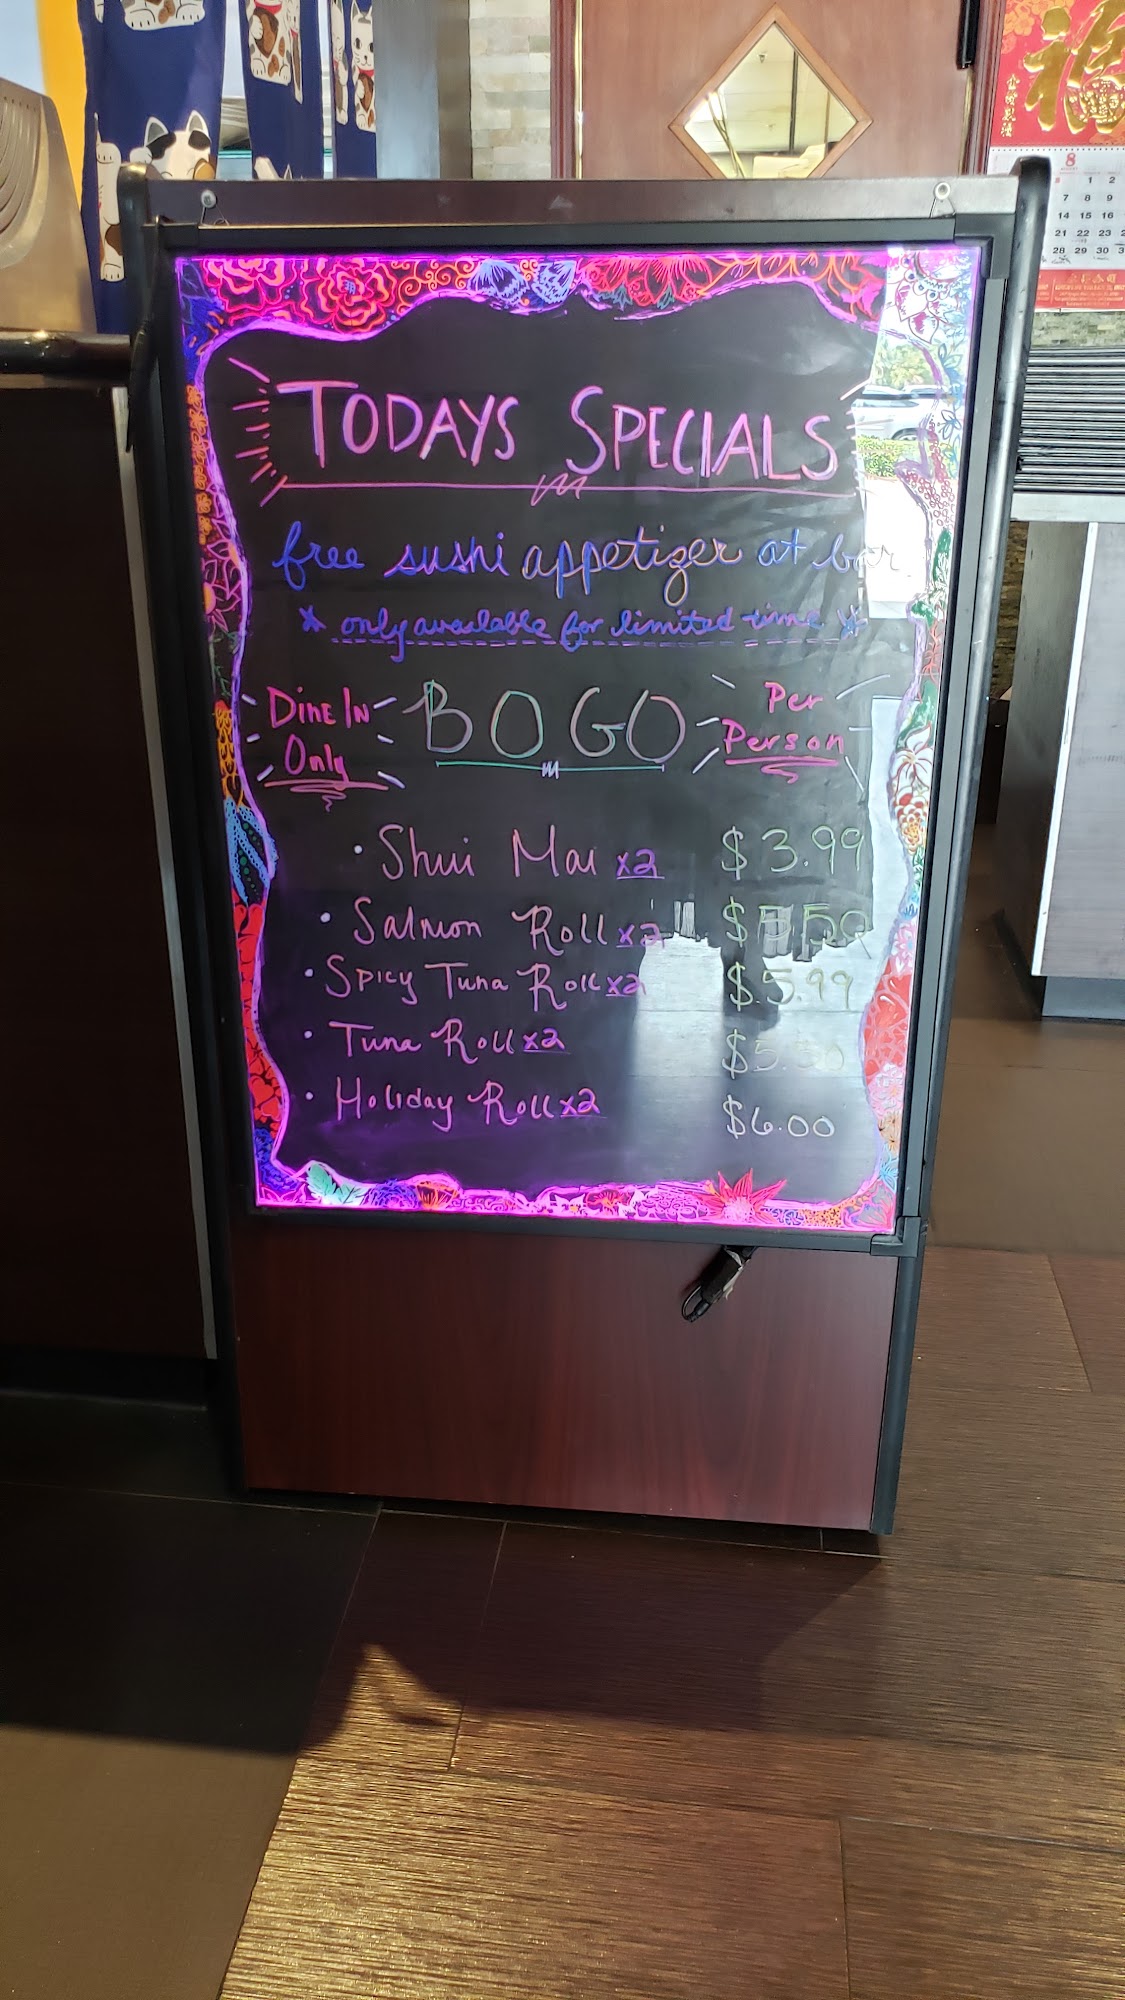 福
8
1 2
7 8 9
14 15 16
21 22 23
28 29 30
TODAYS SPECIALS
free sushi appetizer at bar
* only available for limited time *
DINE IN Only
BOGO
Per Person
• Shui Mai x2 $3.99
• Salmon Roll x2 $5.50
• Spicy Tuna Roll x2 $5.99
• Tuna Roll x2 $5.50
• Holiday Roll x2 $6.00